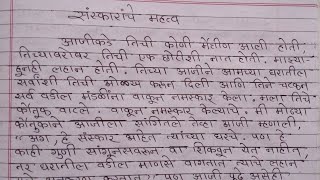 संस्कारांचे महत्व
आजीकडे तिची कोणी मैत्रीण आली होती,
तिच्याबरोबर तिची एक छोटीशी नात होती. माझ्या
हूनही लहान होती. तिच्या आजीने आमच्या घरातील
सर्वांशी तिची ओळख करून दिली आणि तिने पटकन
सर्व वडील मंडळींना वाकून नमस्कार केला. मला तिचे
कौतुक वाटले वाकून नमस्कार केल्याचे. मी मोठ्या
कौतुकाने आजीला सांगितले तेव्हा आजी म्हणाली,
"अगं, हे संस्कार आहेत त्यांच्या घरचे. पण हे
काही गुणी सांगून सवरून वा शिकवून येत नाहीत,
तर घरातील वडील माणसे वागतात त्याचे लहान
पण आजी पुढे असेही